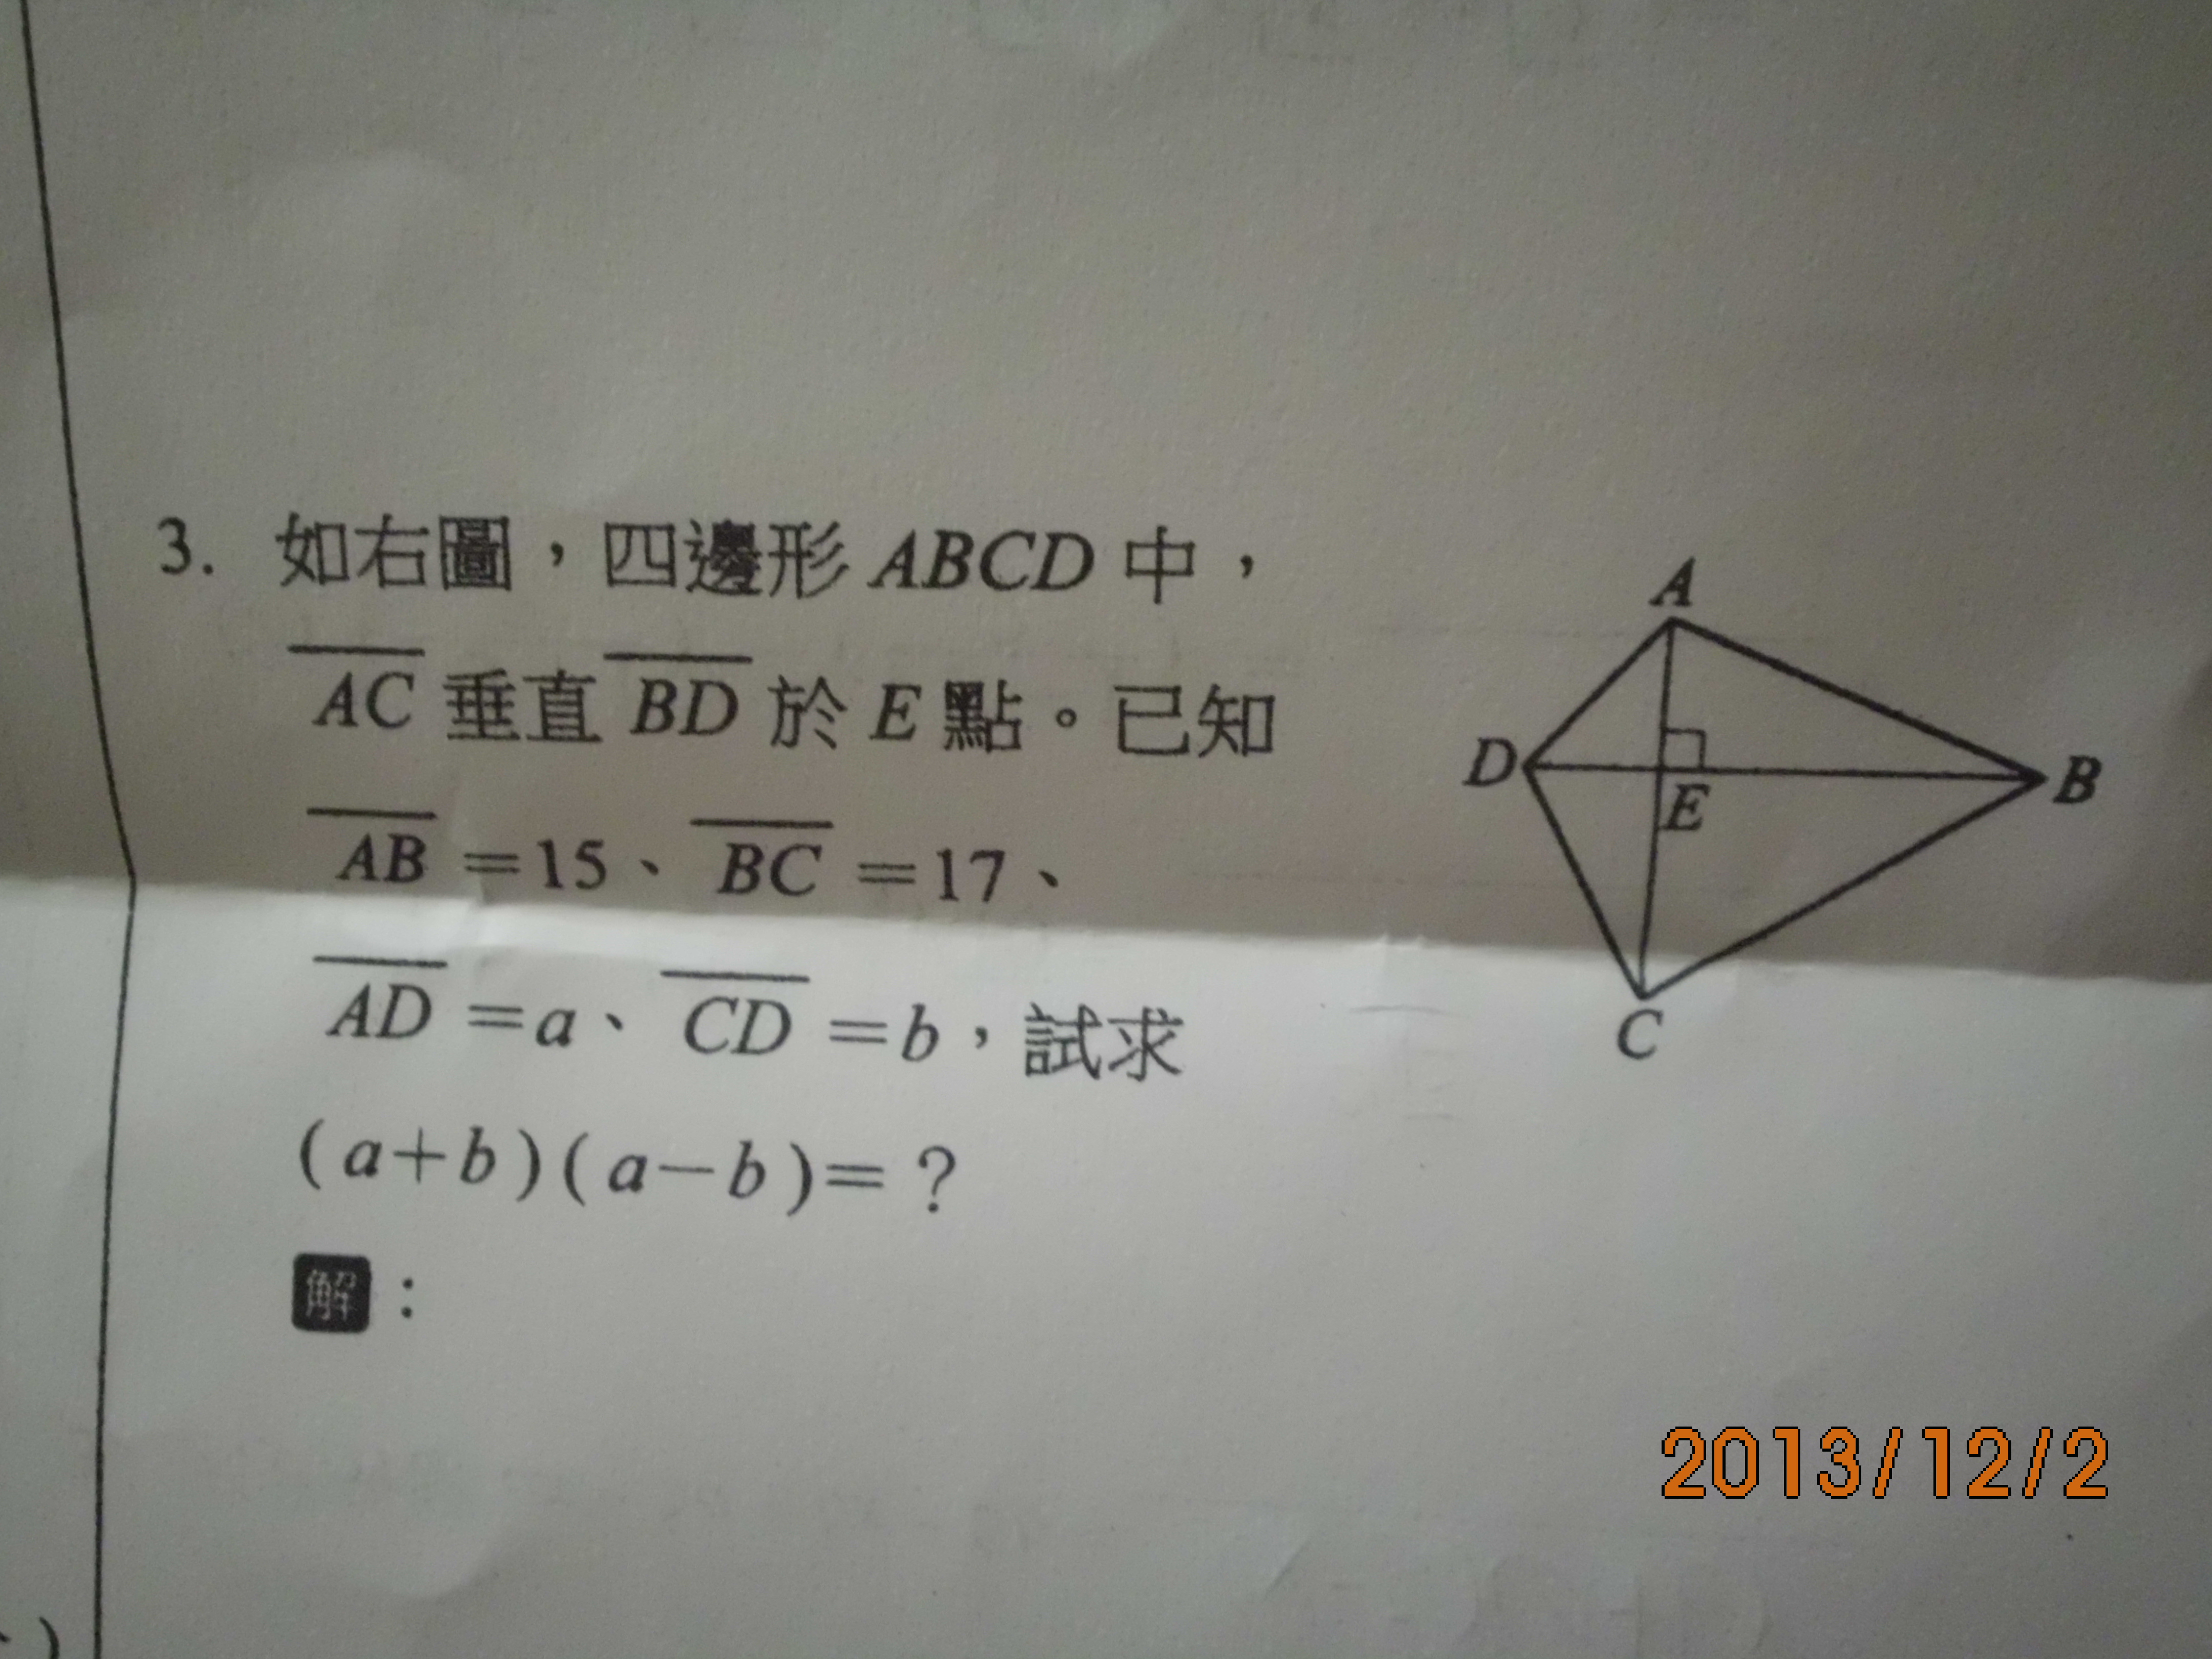 3. 如右圖，四邊形 ABCD 中，
AC 垂直 BD 於 E 點。已知
AB =15、BC =17、
AD =a、CD =b，試求
(a+b)(a-b)=？
解：
A
D
E
B
C
2013/12/2